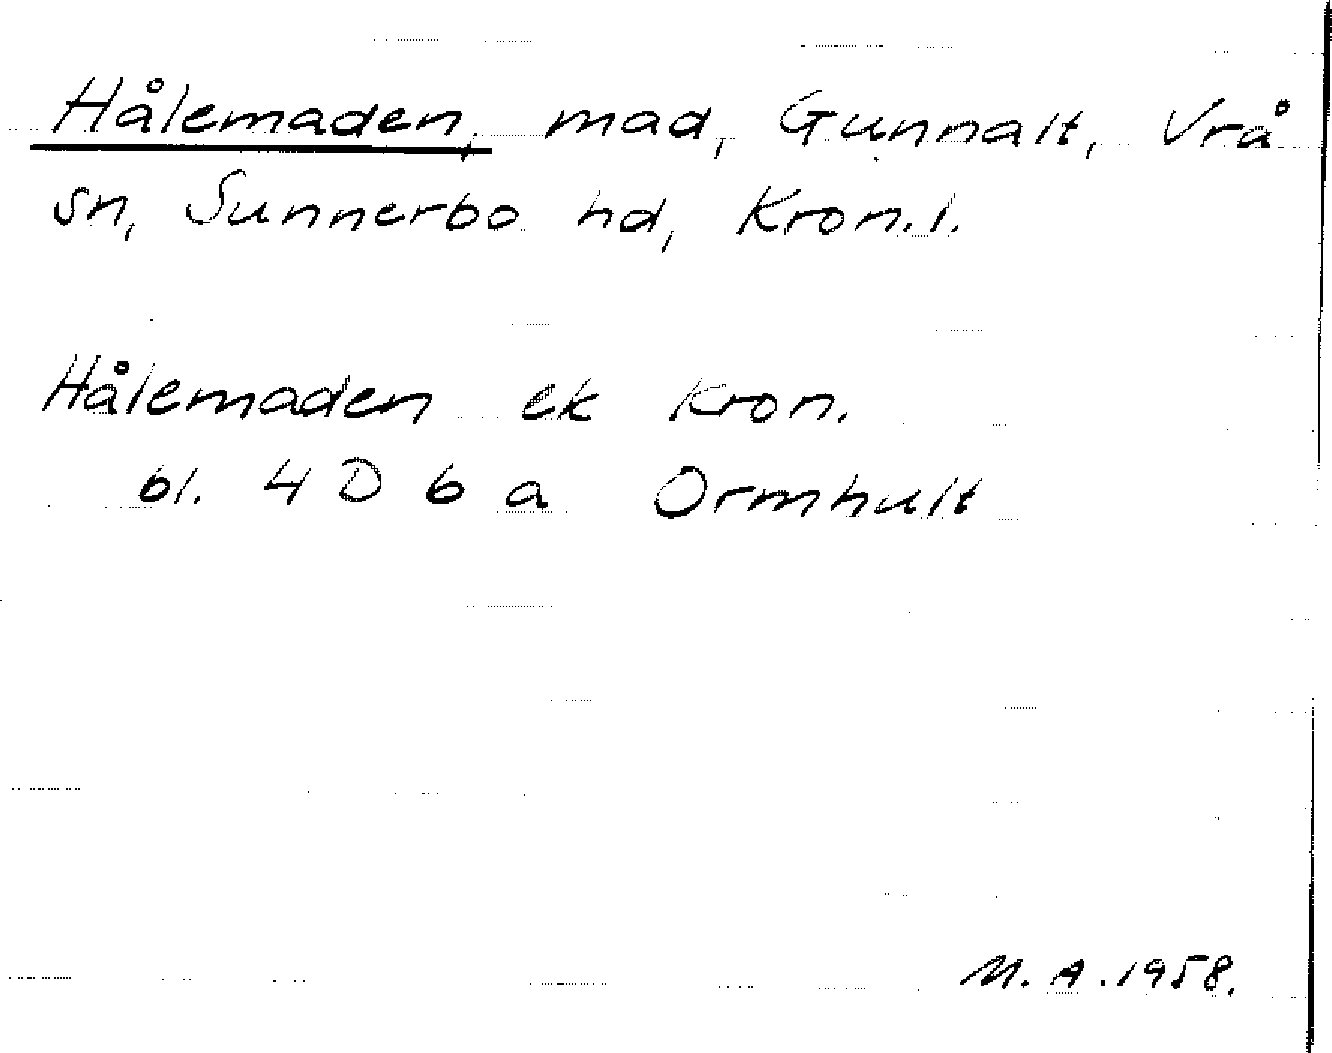 Hålemaden, mad, Gunnalt, Vrå
sn, Sunnerbo hd, Kron.l.
Hålemaden ek Kron.
bl. 4 D 6 a Ormhult
M.A.1958.